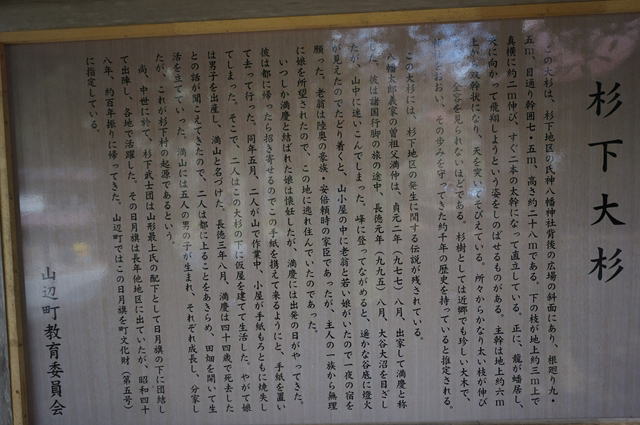 杉下大杉
この大杉は、杉下地区の氏神八幡神社背後の広場の斜面にあり、根廻り九・
五m、目通り幹囲七・五m、高さ約二十八mである。下の枝が地上約三m上で
真横に約二m伸び、すぐ二本の太幹になって直立している。正に、龍が蟠居し、
天に向かって飛翔しようという姿をしのばせるものがある。主幹は地上約六m
上から双幹状になり、天を突いてそびえている。所々からかなり太い枝が伸び
全容を見られないほどである。杉樹としては近郷でも珍しい大木で、
おおい、その歩みを守ってきた約千年の歴史を持っていると推定される。
この大杉には、杉下地区の発生に関する伝説が残されている。
八幡太郎義家の曽祖父満仲は、貞元二年（九七七）八月、出家して満慶と称
した。彼は諸国行脚の旅の途中、長徳元年（九九五）八月、大谷大沼を目ざし
たが、山中に迷いこんでしまった。峰に登ってながめると、遥かな谷底に燈火
が見えたのでたどり着くと、山小屋の中に老翁と若い娘がいたので一夜の宿を
願った。老翁は陸奥の豪族・安倍頼時の家臣であったが、主人の一族から無理
に娘を所望されたので、この地に逃れ住んでいたのであった。
いつしか満慶と結ばれた娘は懐妊したが、満慶には出発の日がやってきた。
彼は都に帰ったら招き寄せるのでこの手紙を携えて来るようにと、手紙を置い
て去って行った。同年五月、二人が山で作業中、小屋が手紙もろともに焼失し
てしまった。そこで、二人はこの大杉の下に仮屋を建てて生活した。やがて娘
は男子を出産し、満山と名づけた。長徳三年八月、満慶は四十四歳で死去した
との話が聞こえてきたので、二人は都に上ることをあきらめ、田畑を開いて生
活を立てていった。満山には五人の男の子が生まれ、それぞれ成長し、分家し
たが、これが杉下村の起源であるという。
尚、中世に於て、杉下武士団は山形最上氏の配下として日月旗の下に団結し
て出陣し、各地で活躍した。その日月旗は長年他地区に出ていたが、昭和四十
八年、約百年振りに帰ってきた。山辺町ではこの日月旗を町文化財（第五号）
に指定している。
山辺町教育委員会